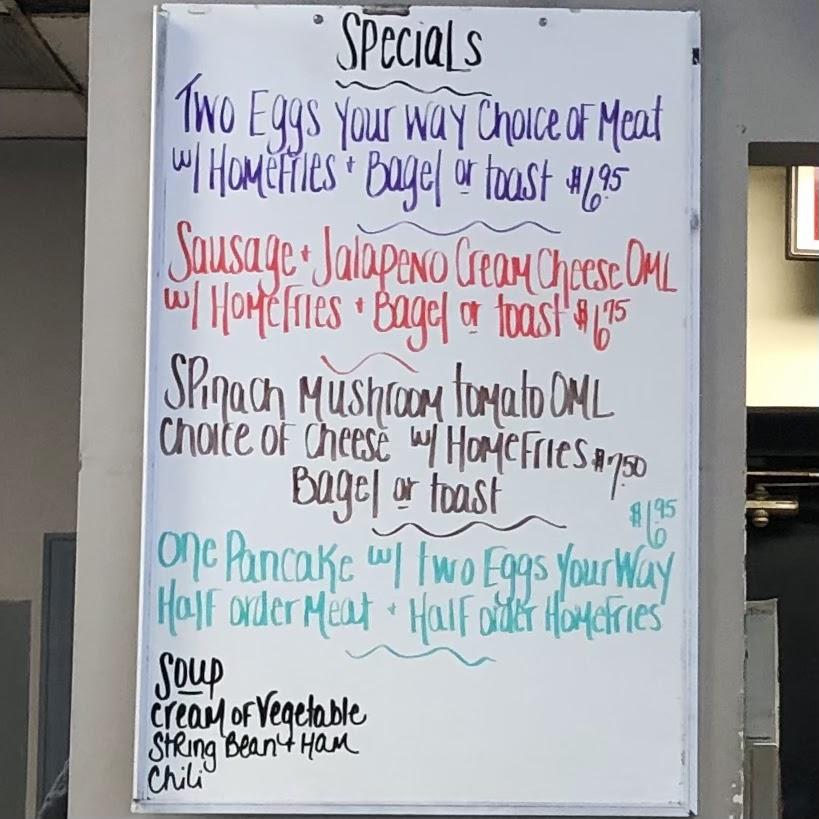 Specials
Two Eggs Your Way Choice of Meat
w/ HomeFries + Bagel or toast $6.95
Sausage + Jalapeno Cream Cheese OML
w/ HomeFries + Bagel or toast $6.75
Spinach Mushroom tomato OML
Choice of Cheese w/ HomeFries $7.50
Bagel or toast
$6.95
One Pancake w/ two Eggs Your Way
Half order Meat + Half order HomeFries
Soup
Cream of Vegetable
String Bean + Ham
Chili